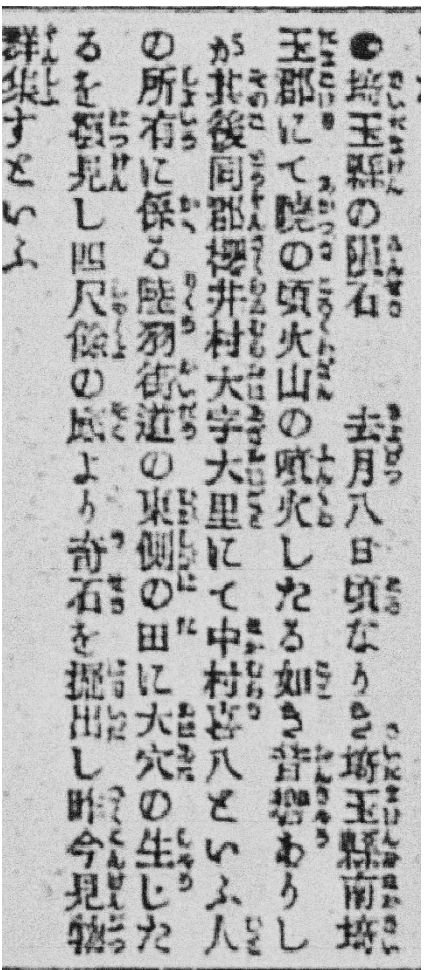 ●埼玉縣の隕石　去月八日頃なりき埼玉縣南埼
玉郡にて暁の頃火山の噴火したる如き音響ありし
が其後同郡櫻井村大字大里にて中村喜八といふ人
の所有に係る陸羽街道の東側の田に大穴の生じた
るを頓見し四尺餘の底より奇石を掘出し昨今見物
群集すといふ